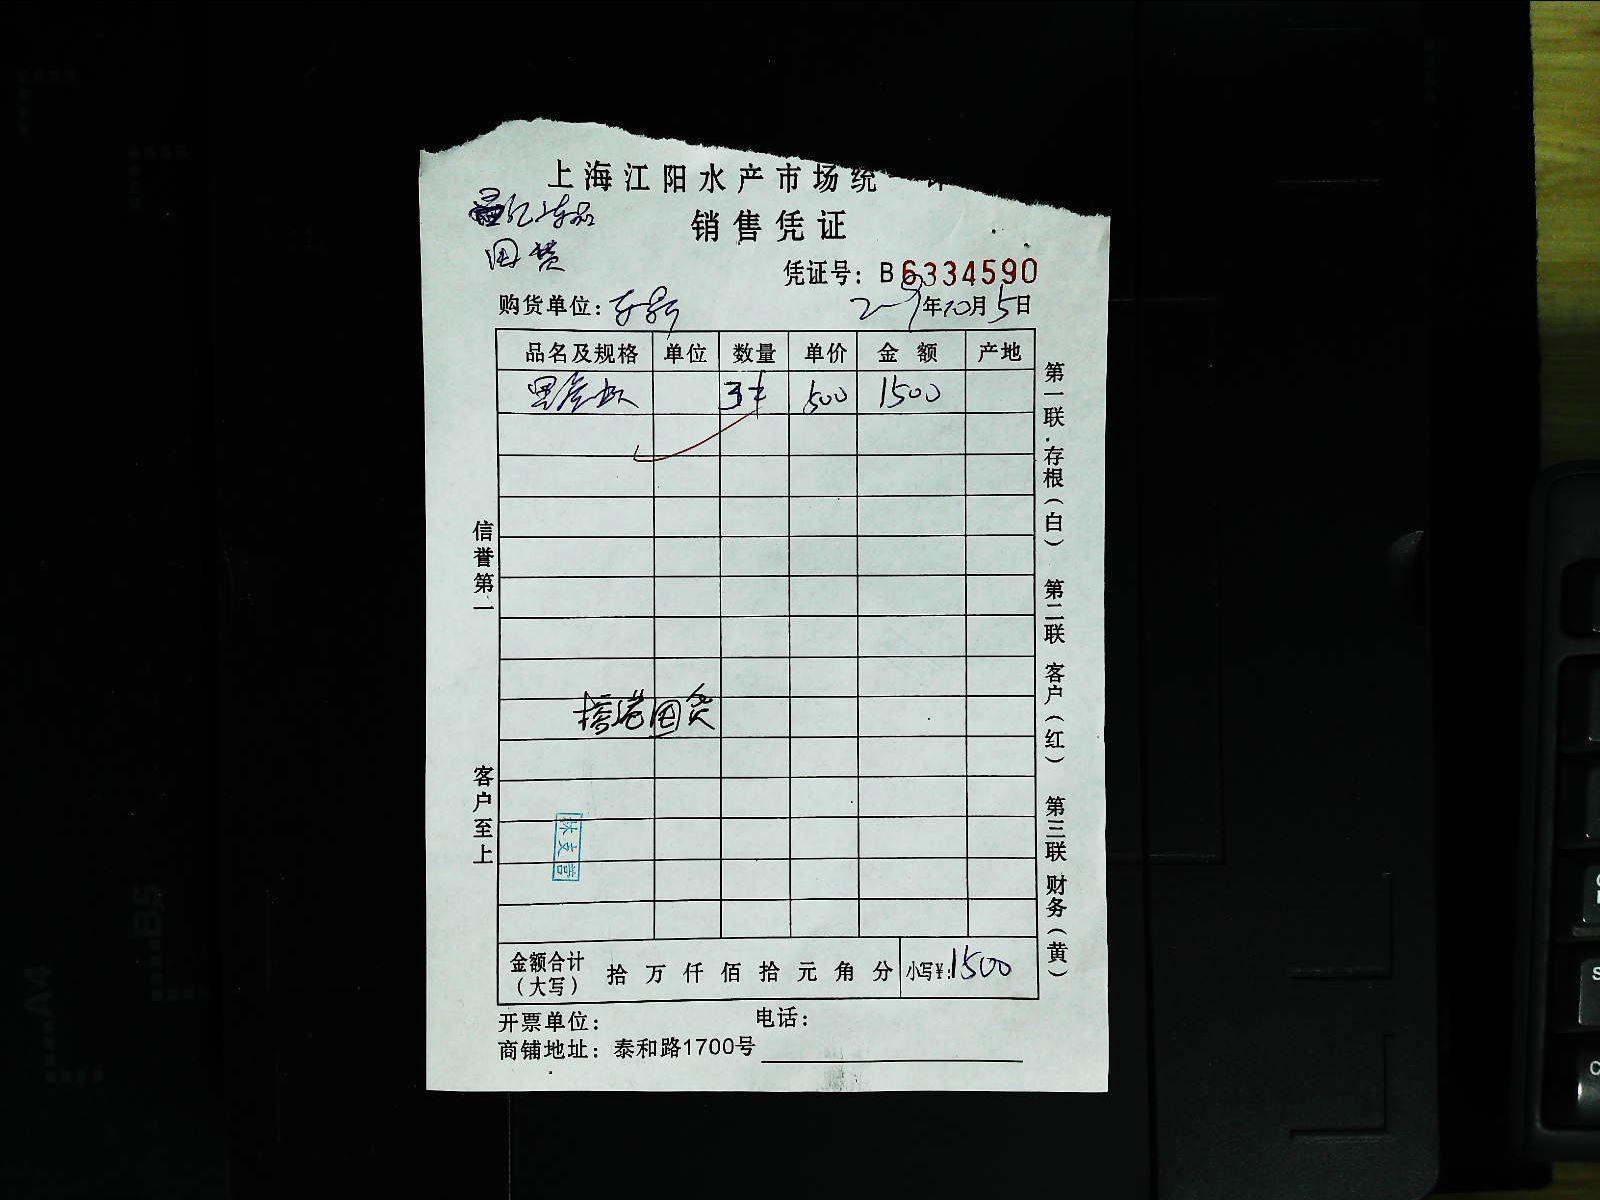 上海江阳水产市场统一
销售凭证
凭证号：B6334590
购货单位：
年10月5日
品名及规格 单位 数量 单价 金额 产地
黑虎虾 3件 500 1500
信誉第一
客户至上
第一联.存根（白） 第二联 客户（红） 第三联 财务（黄）
林文营
金额合计（大写） 拾 万 仟 佰 拾 元 角 分 小写¥:1500
开票单位： 电话：
商铺地址：泰和路1700号